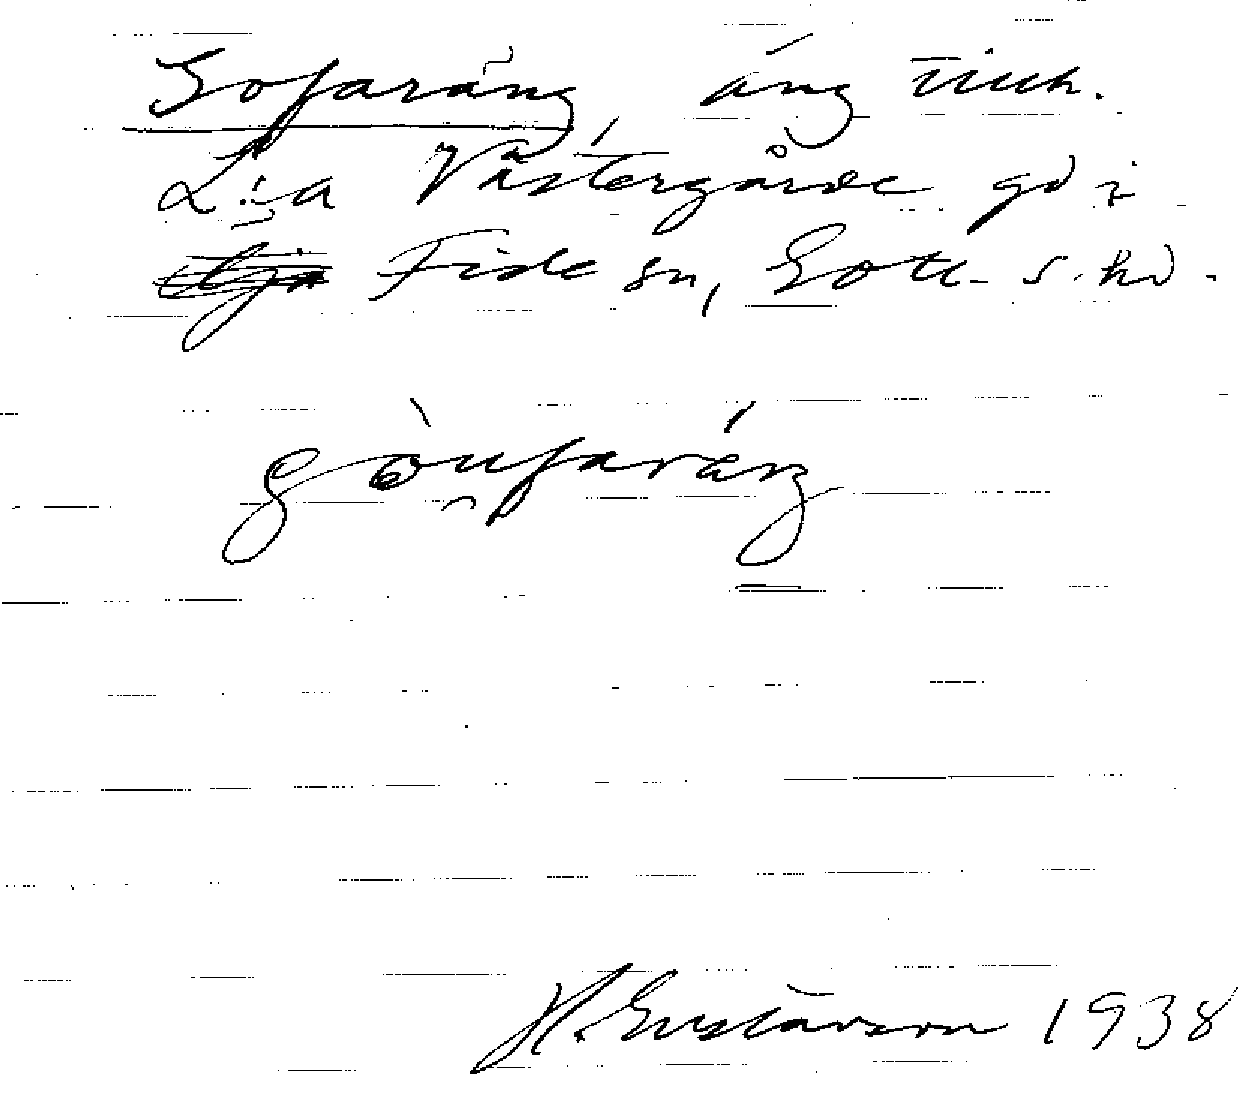 Gofaräng, äng tillh.
L:a Västergårde gd i
Fide sn, Gotl. s. hd.
gòu̯faráŋ
H. Gustavson 1938